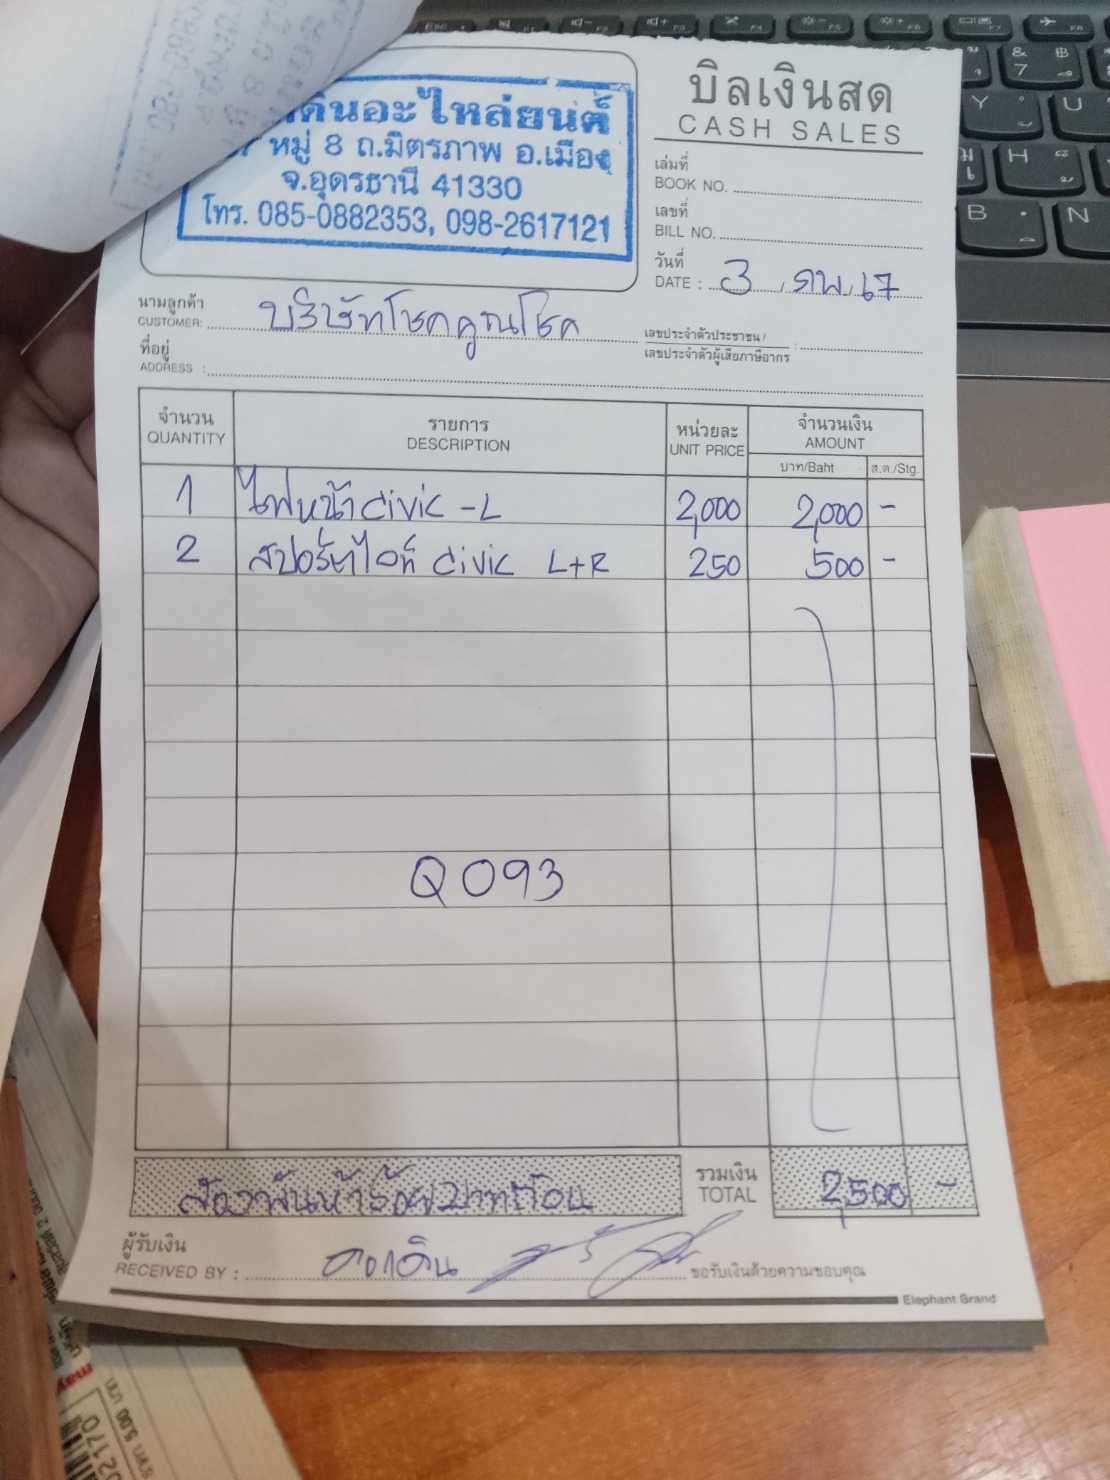 ดินอะไหล่ยนต์
หมู่ 8 ถ.มิตรภาพ อ.เมือง
จ.อุดรธานี 41330
โทร. 085-0882353, 098-2617121
บิลเงินสด
CASH SALES
เล่มที่
BOOK NO.
เลขที่
BILL NO.
วันที่
DATE : 3 / กพ / 67
นามลูกค้า
CUSTOMER: บริษัทโชคคูณโชค
เลขประจำตัวประชาชน /
เลขประจำตัวผู้เสียภาษีอากร :
ที่อยู่
ADDRESS :
จำนวน รายการ หน่วยละ จำนวนเงิน
QUANTITY DESCRIPTION UNIT PRICE AMOUNT
บาท/Baht ส.ต./Stg.
1 ไฟหน้า civic - L 2,000 2,000 -
2 สปอร์ตไลท์ civic L+R 250 500 -
Q093
สองพันห้าร้อยบาทถ้วน
รวมเงิน
TOTAL 2,500 -
ผู้รับเงิน
RECEIVED BY :
ขอรับเงินด้วยความขอบคุณ
Elephant Brand
ราคา 5.00 บาท
02170